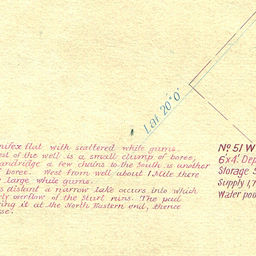 Lat 20°0'
nifex flat with scattered white gums.
est of the well is a small clump of boree,
andridge a few chains to the South is another
boree. West from well about 1 Mile there
large white gums.
s distant a narrow lake occurs into which
rly overflow of the Sturt runs. The pad
ing it at the North Eastern end, thence
se.
No 51 W
6'x4'. Dep
Storage
Supply 1,
Water poo